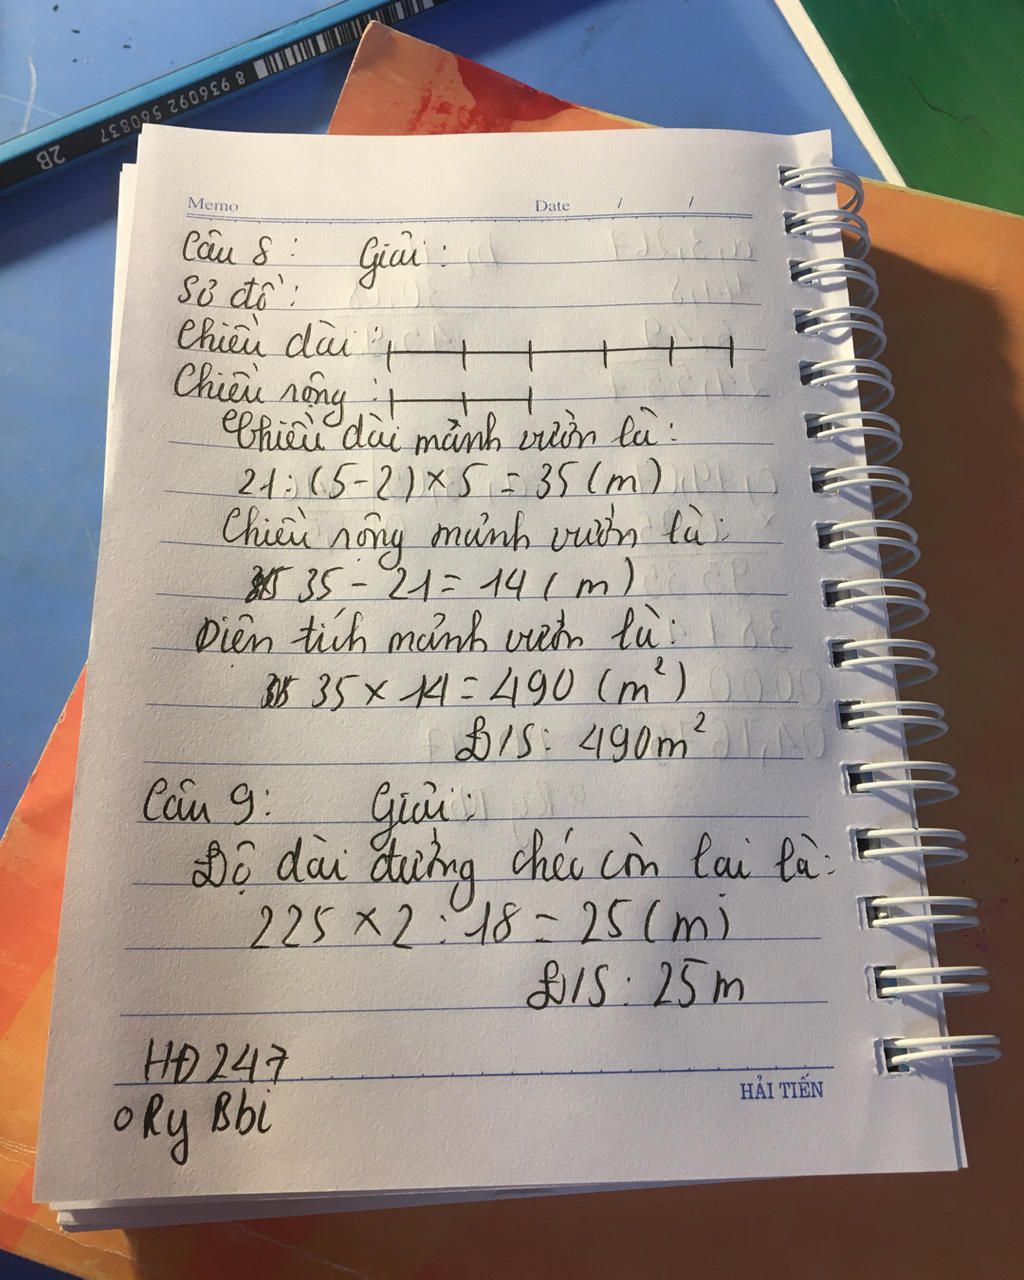 8 936092 560837
2B
Memo Date / /
Câu 8: Giải:
Sơ đồ:
Chiều dài:
Chiều rộng:
Chiều dài mảnh vườn là:
21 : (5 - 2) × 5 = 35 (m)
Chiều rộng mảnh vườn là:
35 - 21 = 14 (m)
Diện tích mảnh vườn là:
35 × 14 = 490 (m²)
Đ/S: 490m²
Câu 9: Giải:
Độ dài đường chéo còn lại là:
225 × 2 : 18 = 25 (m)
Đ/S: 25 m
HĐ247
HẢI TIẾN
Ry Bbi